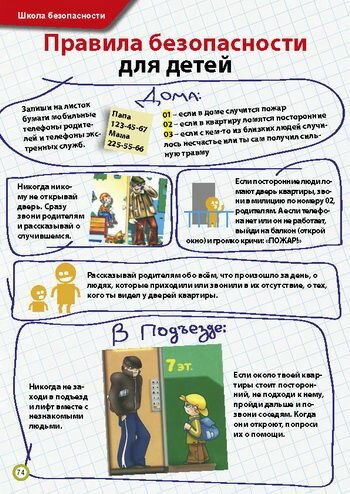 Школа безопасности
Правила безопасности
для детей
ДОМА:
Запиши на листок
бумаги мобильные
телефоны родите-
лей и телефоны экс-
тренных служб.
Папа
123-45-67
Мама
225-55-66
01 – если в доме случится пожар
02 – если в квартиру ломятся посторонние
03 – если с кем-то из близких людей случи-
лось несчастье или ты сам получил силь-
ную травму
Никогда нико-
му не открывай
дверь. Сразу
звони родителям
и рассказывай о
случившемся.
Если посторонние люди ло-
мают дверь квартиры, зво-
ни в милицию по номеру 02,
родителям. А если телефо-
на нет или он не работает,
выйди на балкон (открой
окно) и громко кричи: «ПОЖАР!»
Рассказывай родителям обо всём, что произошло за день, о
людях, которые приходили или звонили в их отсутствие, о тех,
кого ты видел у дверей квартиры.
В Подъезде:
Никогда не за-
ходи в подъезд
и лифт вместе с
незнакомыми
людьми.
7 эт.
Если около твоей квар-
тиры стоит посторон-
ний, не подходи к нему,
пройди дальше и по-
звони соседям. Когда
они откроют, попроси
их о помощи.
74